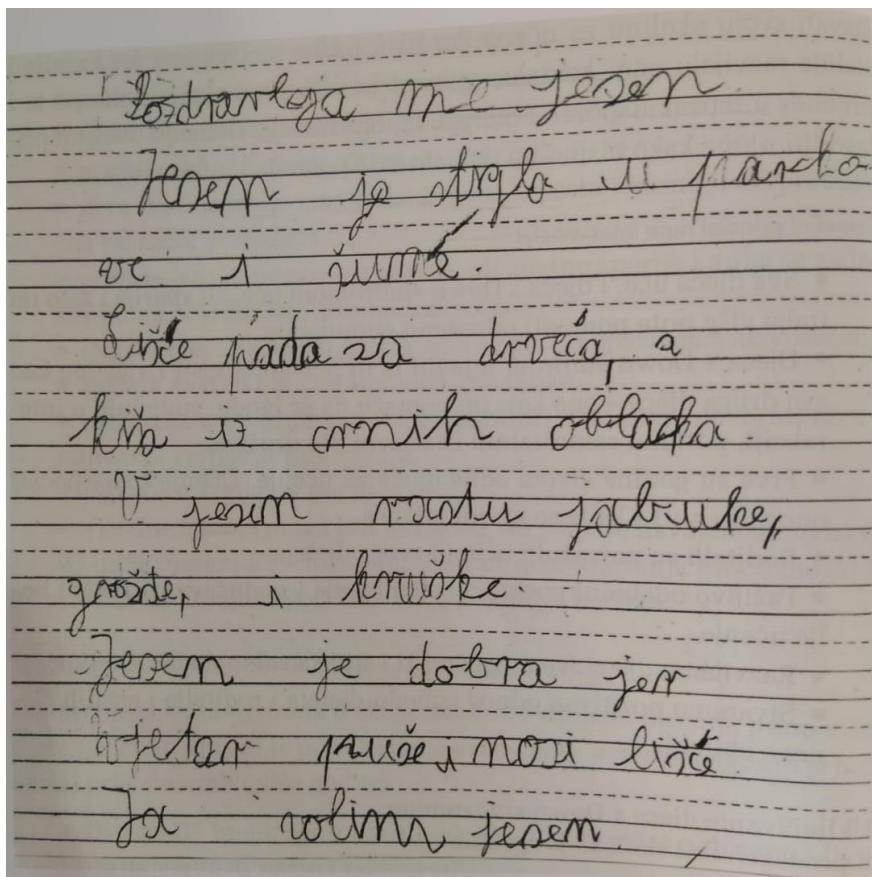 Pozdravlja me jesen.
Jesen je stigla u parko
ve i šume.
Lišće pada sa drveća, a
kiša iz crnih oblaka.
U jesen rastu jabuke,
grožđe, i kruške.
Jesen je dobra jer
vjetar puše i nosi lišće
Ja volim jesen.